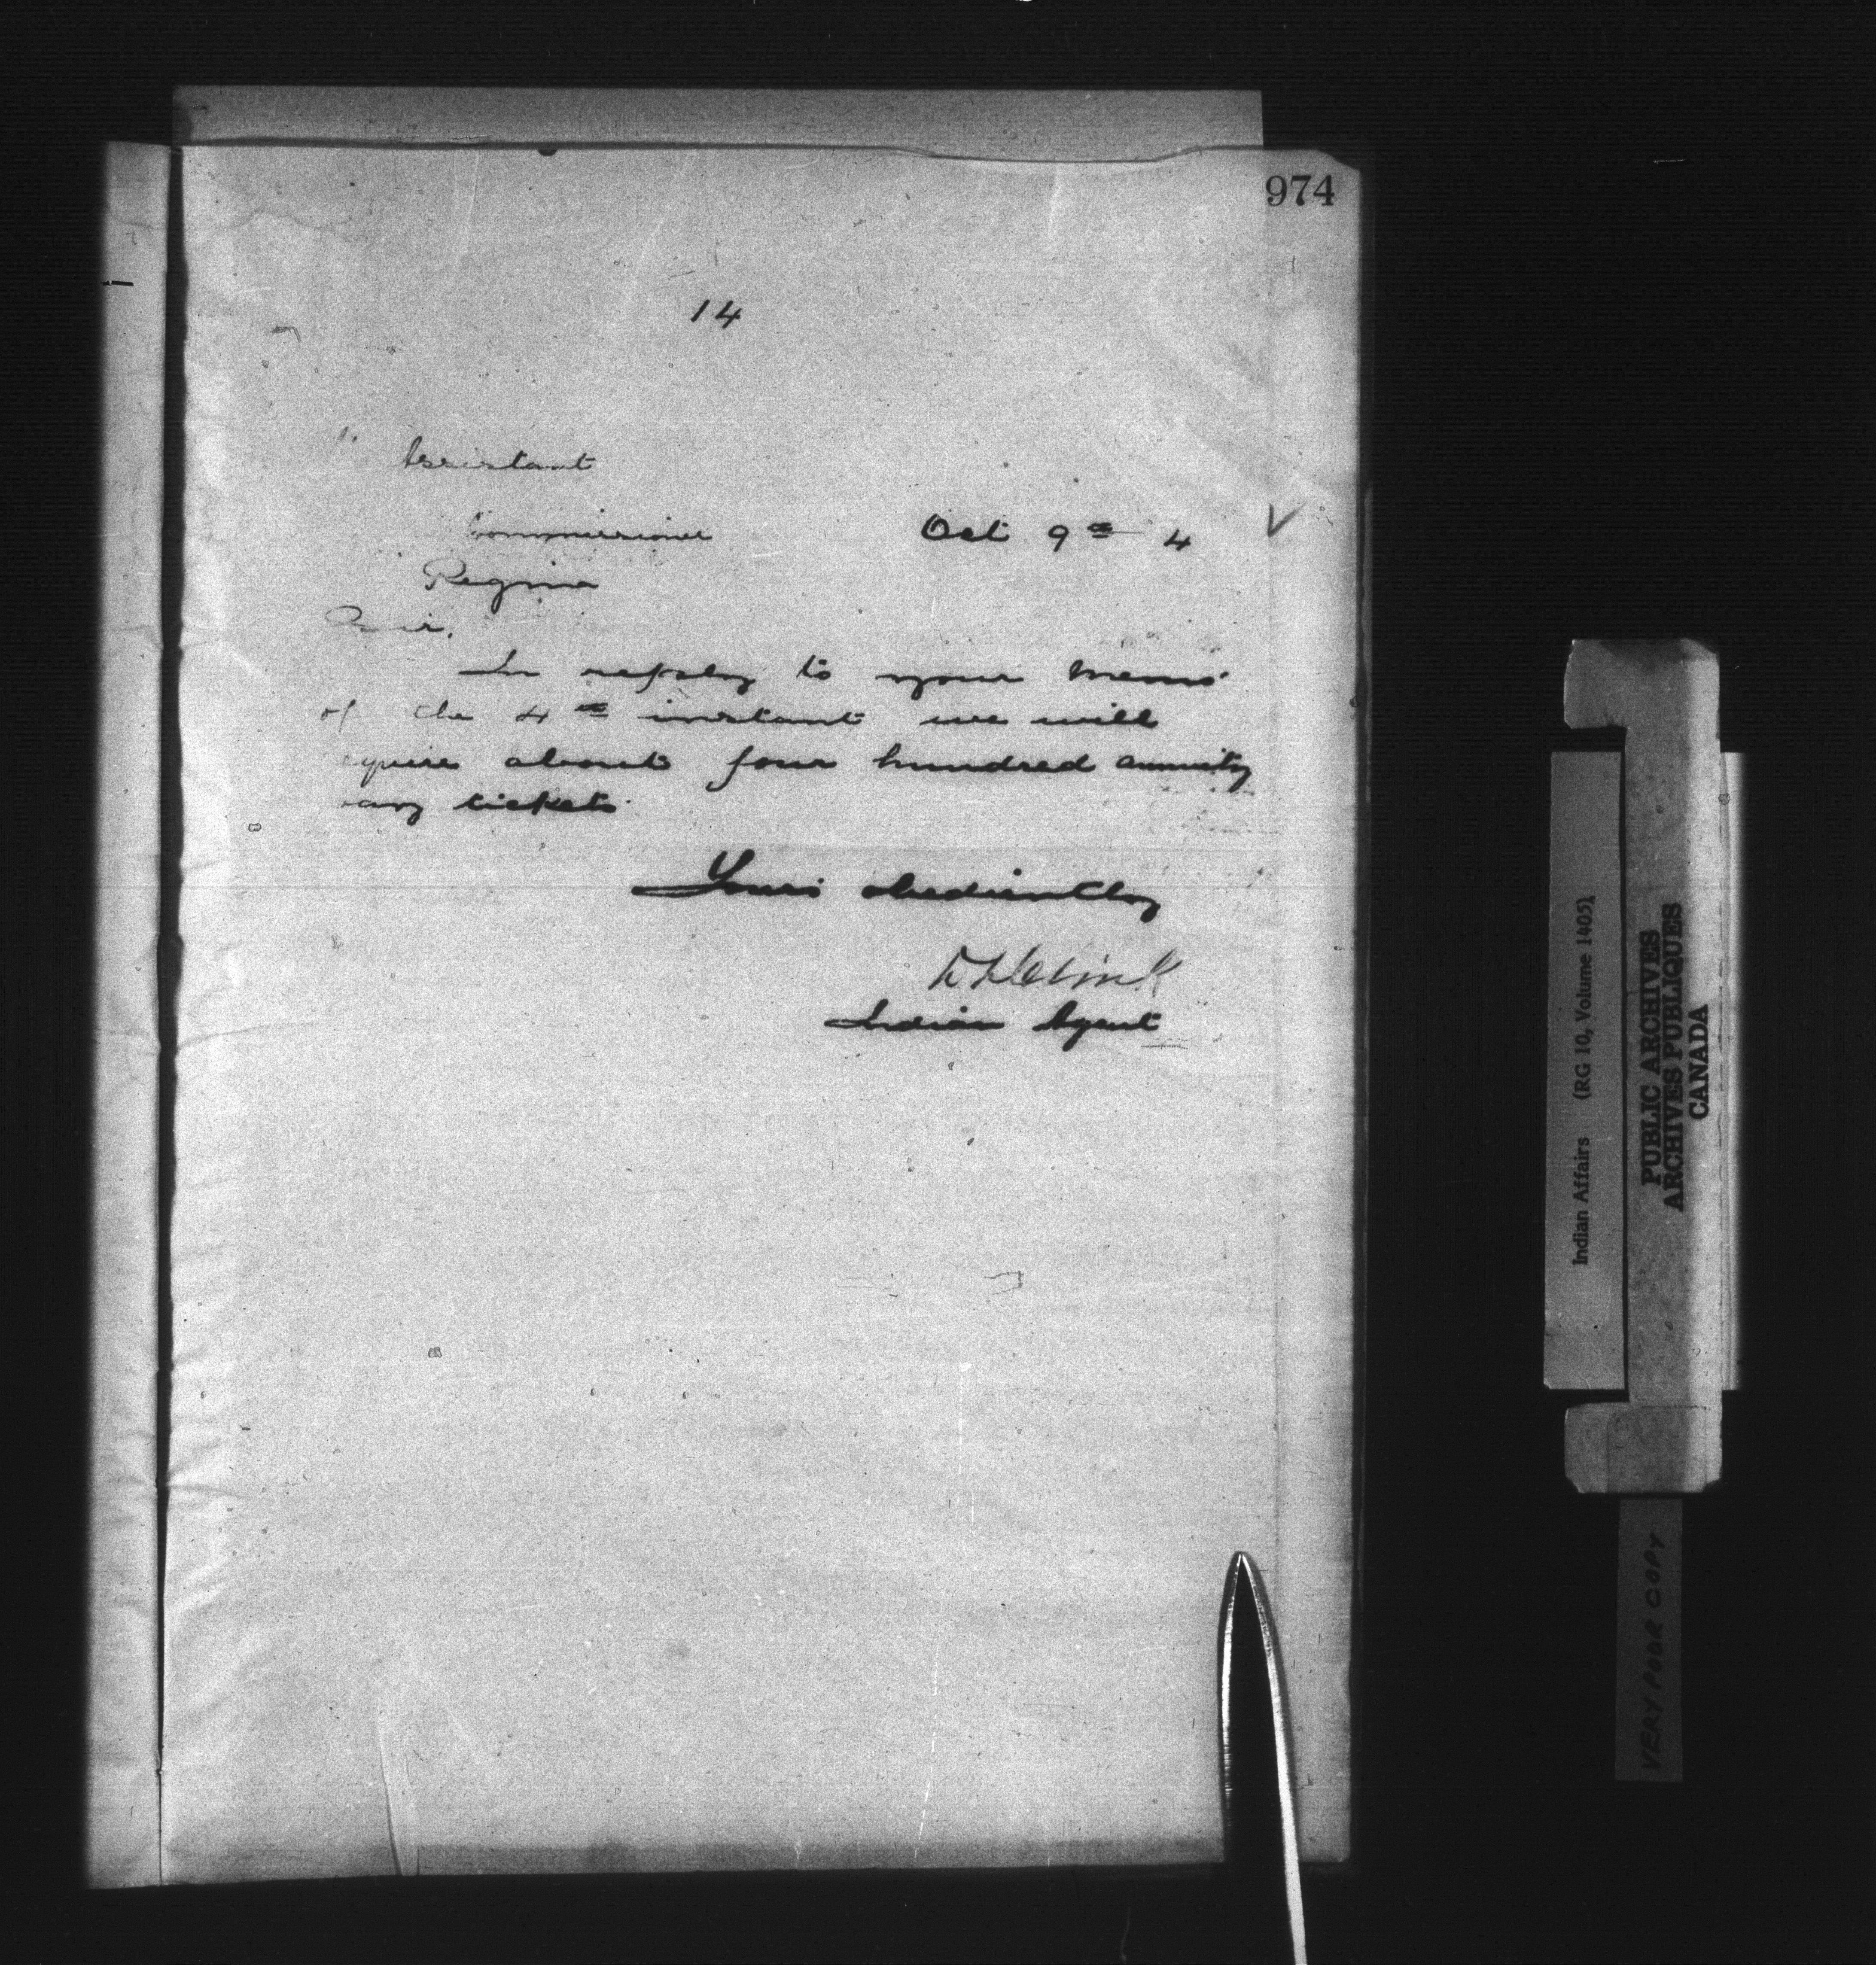 974
14
Assistant
Commissioner Oct 9th 4
Regina
Sir,
In reply to your memo
of the 4th instant we will
equire about four hundred annuity
pay tickets
Yours obediently
Indian Agent
Indian Affairs (RG 10, Volume 1405)
PUBLIC ARCHIVES
ARCHIVES PUBLIQUES
CANADA
VERY POOR COPY